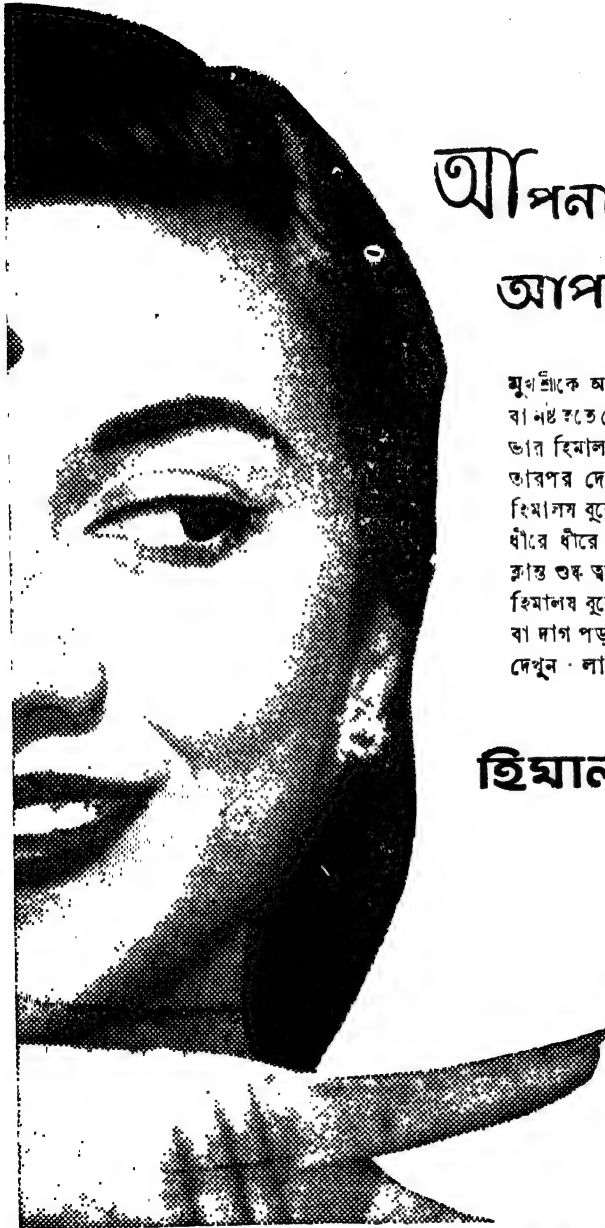 আপনা
আপ
মুখশ্রীকে অ
বা নষ্ট হতে দে
ভার হিমাল
তারপর দে
হিমালয় বুকে
ধীরে ধীরে
ক্লান্ত শুষ্ক ত্ব
হিমালয় বুকে
বা দাগ পড়
দেখুন · লা
হিমাল